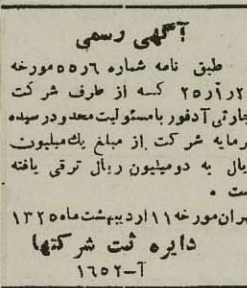 آگهی رسمی
طبق نامه شماره ۶ر۵۵ مورخه
۲ر۱ر۲۵ کسه از طرف شرکت
جارتی آدفور بامسئولیت محدود رسیده
رمایه شرکت از مبلغ یكمیلیون
یال به دومیلیون ریال ترقی یافته
ست .
ران مورخه ۱۱ اردیبهشت ماه ۱۳۲۵
دایره ثبت شرکتها
آ-۱۶۵۲